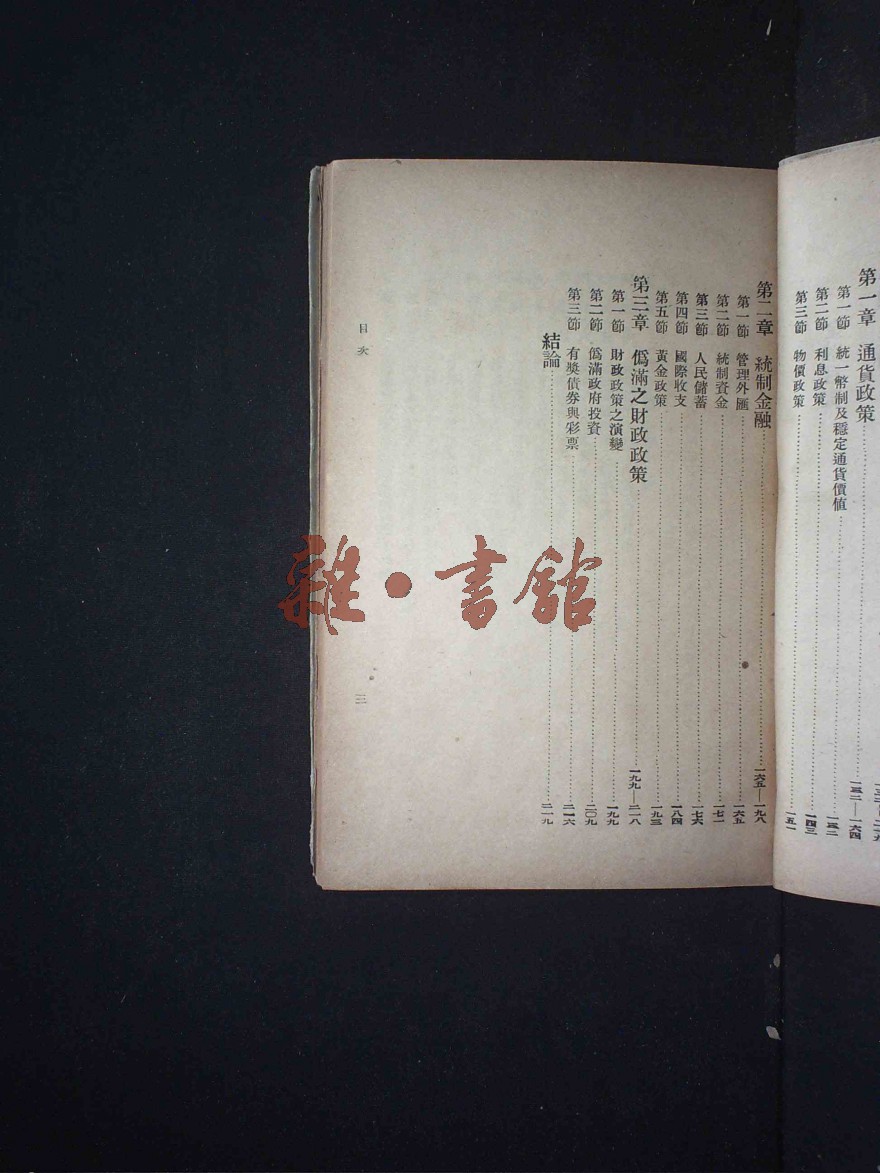 第一章　通貨政策……一三二—一六四
第一節　統一幣制及穩定通貨價值……一三二
第二節　利息政策……一四三
第三節　物價政策……一五一
第二章　統制金融……一六五—一九八
第一節　管理外匯……一六五
第二節　統制資金……一七一
第三節　人民儲蓄……一七六
第四節　國際收支……一八四
第五節　黃金政策……一九三
第三章　僞滿之財政政策……一九九—二一八
第一節　財政政策之演變……一九九
第二節　僞滿政府投資……二〇九
第三節　有獎債券與彩票……二一六
結論……二一九
目次
三
雜·書館